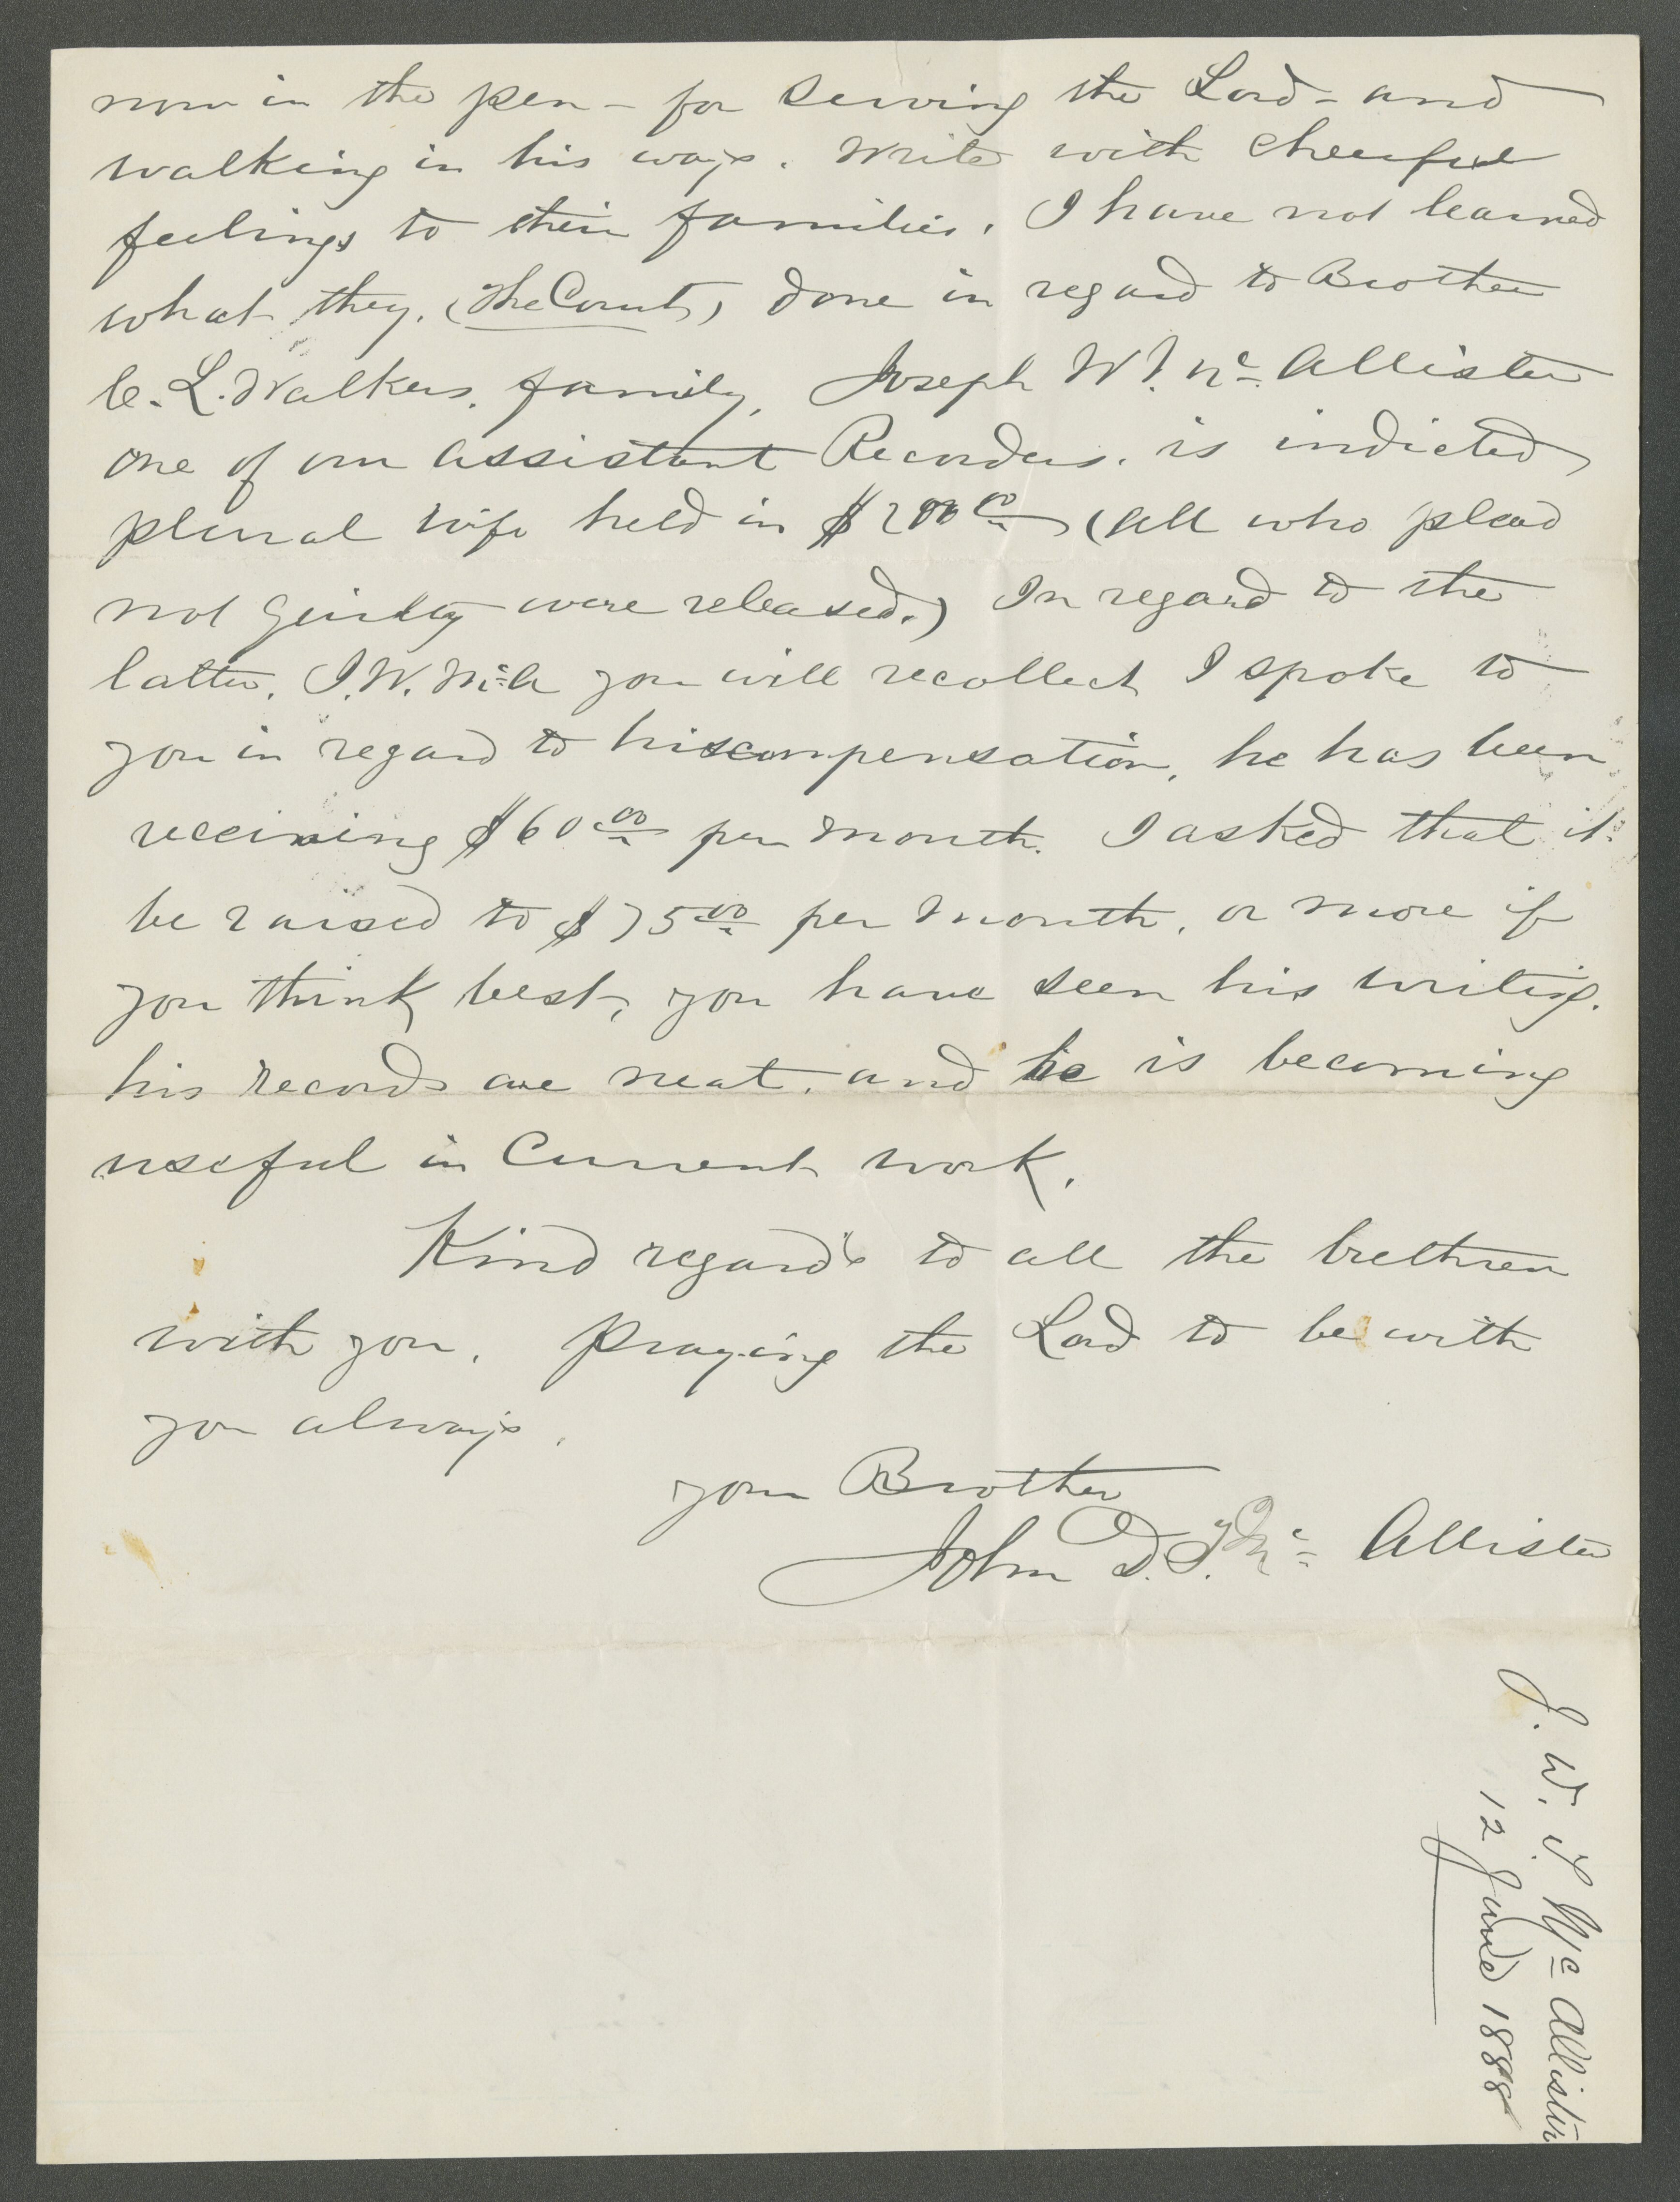 now in the pen - for serving the Lord - and
walking in his ways. Write with cheerful
feelings to their families. I have not learned
what they, (The Court) done in regard to Brother
C. L. Walkers, family, Joseph W. Mc. Allister
one of our assistant Recorders. is indicted
plural wife held in $200 00 (all who plead
not Geirlty were released.) In regard to the
latter. J. W. McA you will recollect I spoke to
you in regard to his compensation, he has been
receiving $60 00 per month. I asked that it
be raised to $75 00 per month, or more if
you think best, you have seen his writing.
his records are neat. and he is becoming
useful in Current work.
Kind regards to all the brethren
with you. Praying the Lord to be with
you always.
your Brother
John D. T. Mc Allister
J. W. T. Mc Allister
12 June 1888